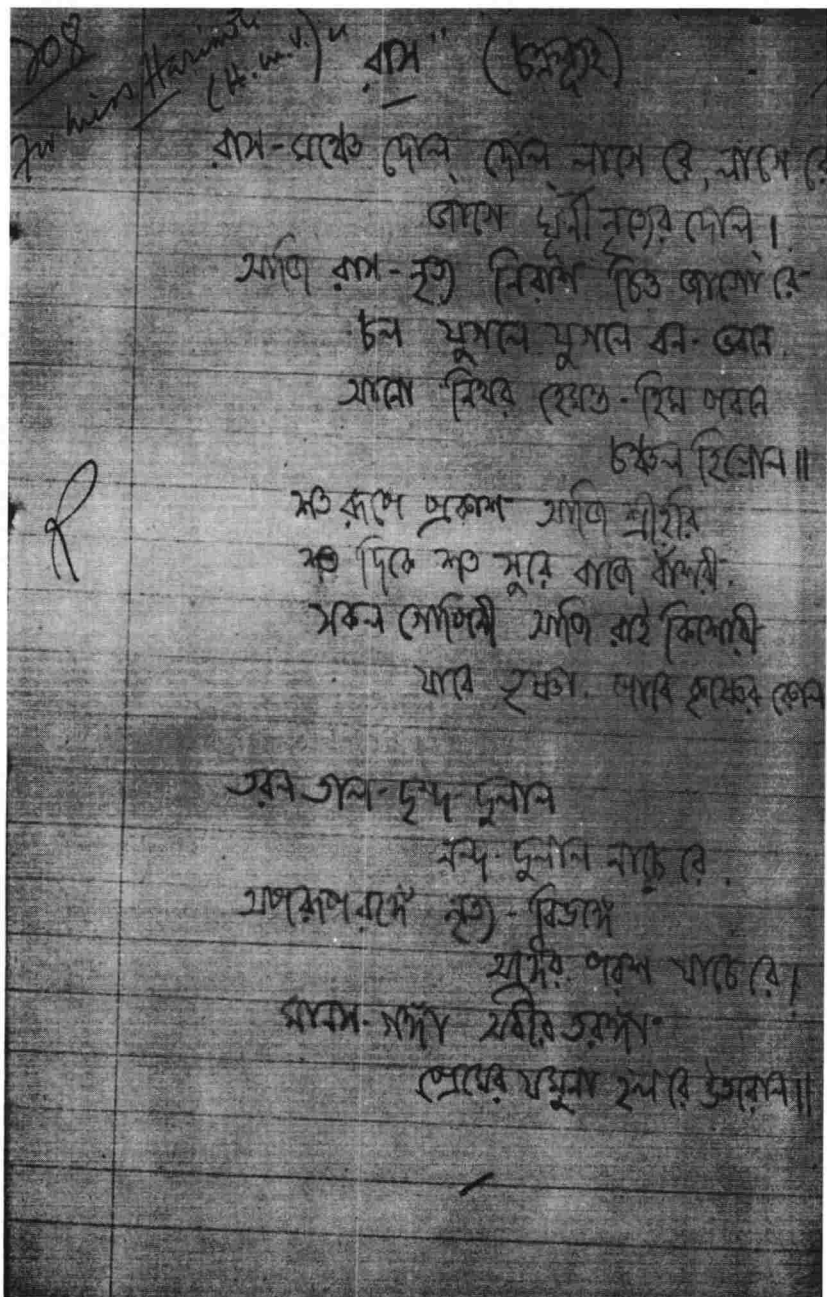 ২০৪
For miss Harimati
(H.M.V.)
"রাস" 
রাস-মঞ্চে দোল্ দোল্ লাগে রে, লাগে রে
জাগে ঘূর্ণী নৃত্যের দোল্।
আজি রাস-নৃত্য নিরাশ চিত্ত জাগো রে
চল যুগলে যুগলে বন-ভবনে
আনো নিথর হেমন্ত-হিম পবনে
চঞ্চল হিল্লোল॥
শত রূপে প্রকাশ আজি শ্রীহরি
শত দিকে শত সুরে বাজে বাঁশরী
সকল গোপিনী আজি রাই কিশোরী
যাবে তৃষ্ণা, পাবি কৃষ্ণের কোল
তরল তাল-ছন্দ-দুলাল
নন্দ-দুলাল নাচে রে
অপরূপ রঙ্গে নৃত্য-বিভঙ্গে
অঙ্গের পরশ যাচে রে।
মানস-গঙ্গা অধীর তরঙ্গা
প্রেমের যমুনা হল রে উতরোল॥